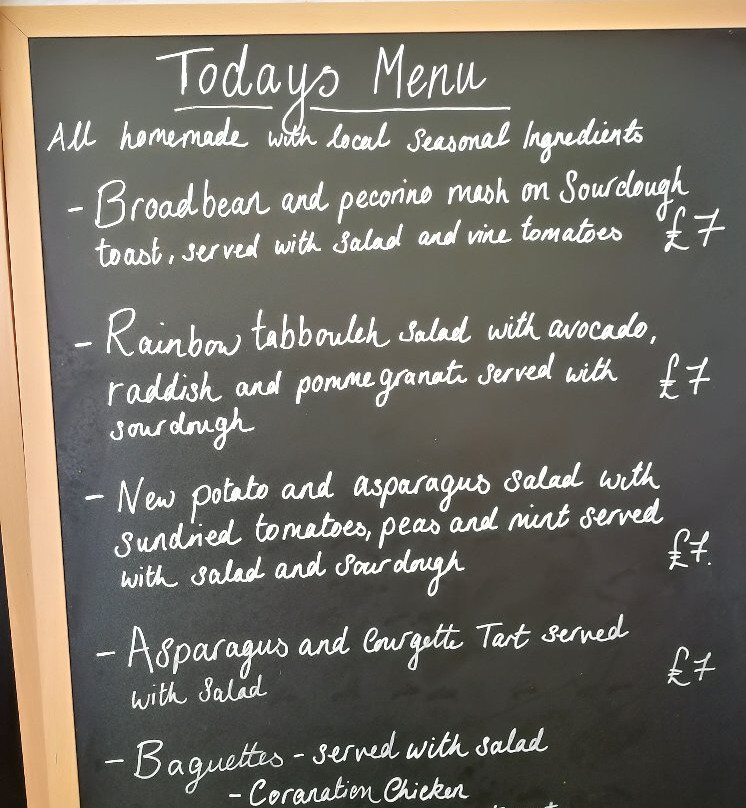 Todays Menu
All homemade with local Seasonal Ingredients
- Broadbean and pecorino mash on Sourdough
toast, served with Salad and vine tomatoes £7
- Rainbow tabbouleh salad with avocado,
raddish and pommegranate served with £7
sourdough
- New potato and asparagus salad with
sundried tomatoes, peas and mint served
with salad and sourdough £7.
- Asparagus and Courgette Tart served
with Salad £7
- Baguettes - served with salad
- Coranation Chicken